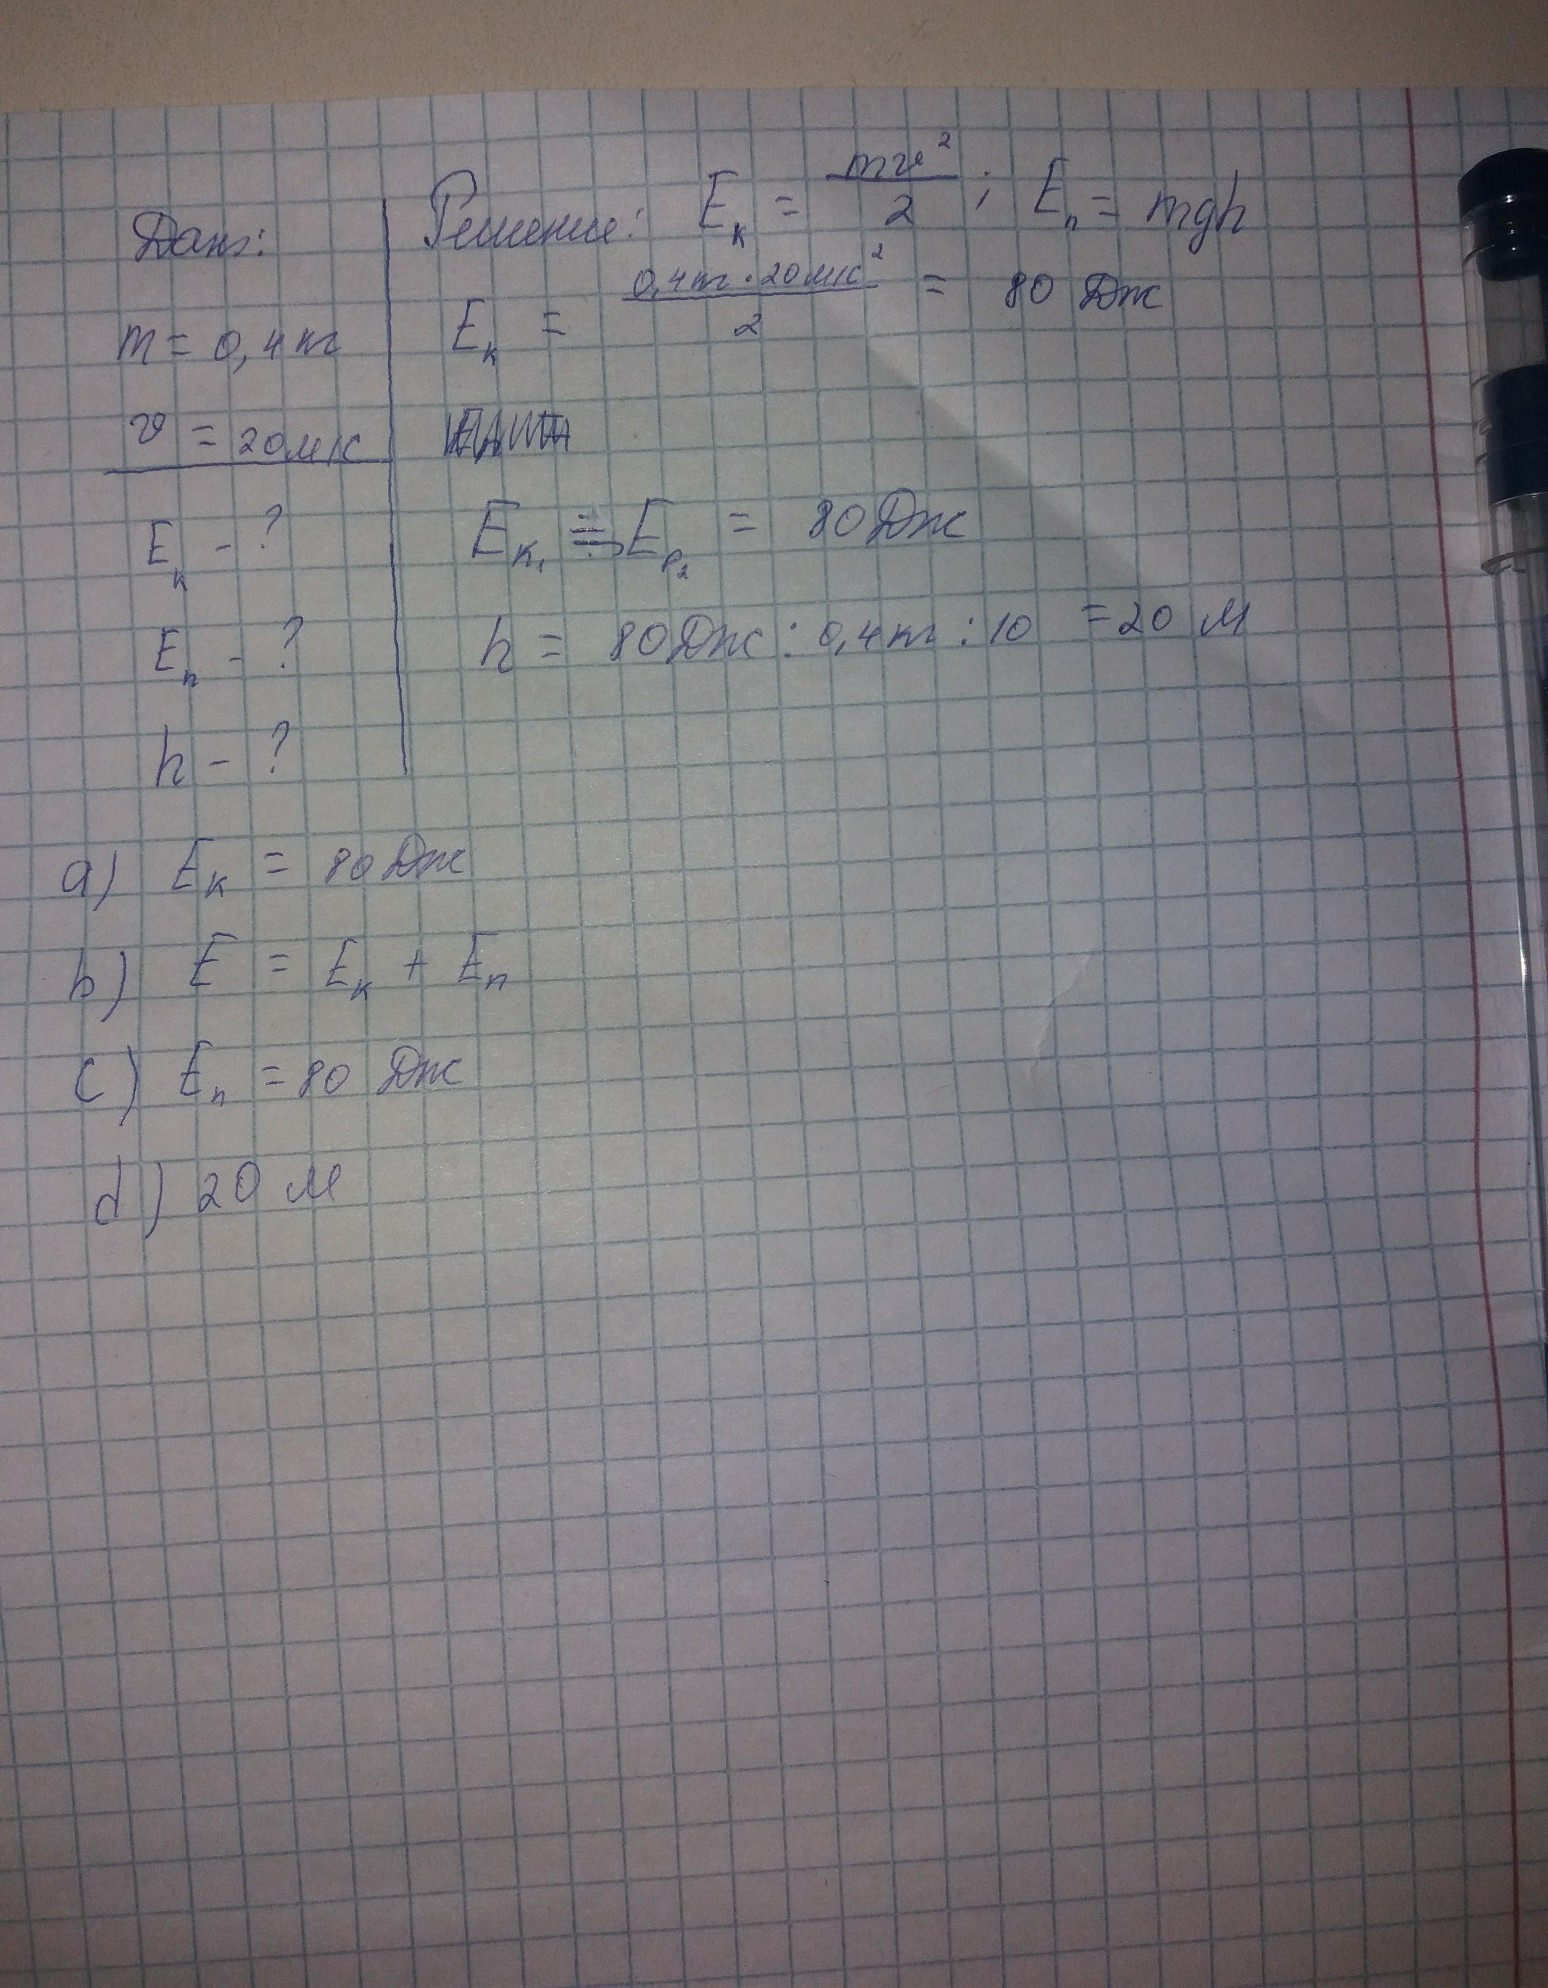 Дано:
m = 0,4 кг
v = 20 м/с
Eк - ?
Eп - ?
h - ?
Решение: Eк = mv²/2 ; Eп = mgh
Eк = 0,4кг · 20м/с²/2 = 80 Дж
Eк₁ = Eр₂ = 80 Дж
h = 80 Дж : 0,4 кг : 10 = 20 м
a) Eк = 80 Дж
b) E = Eк + Eп
c) Eп = 80 Дж
d) 20 м